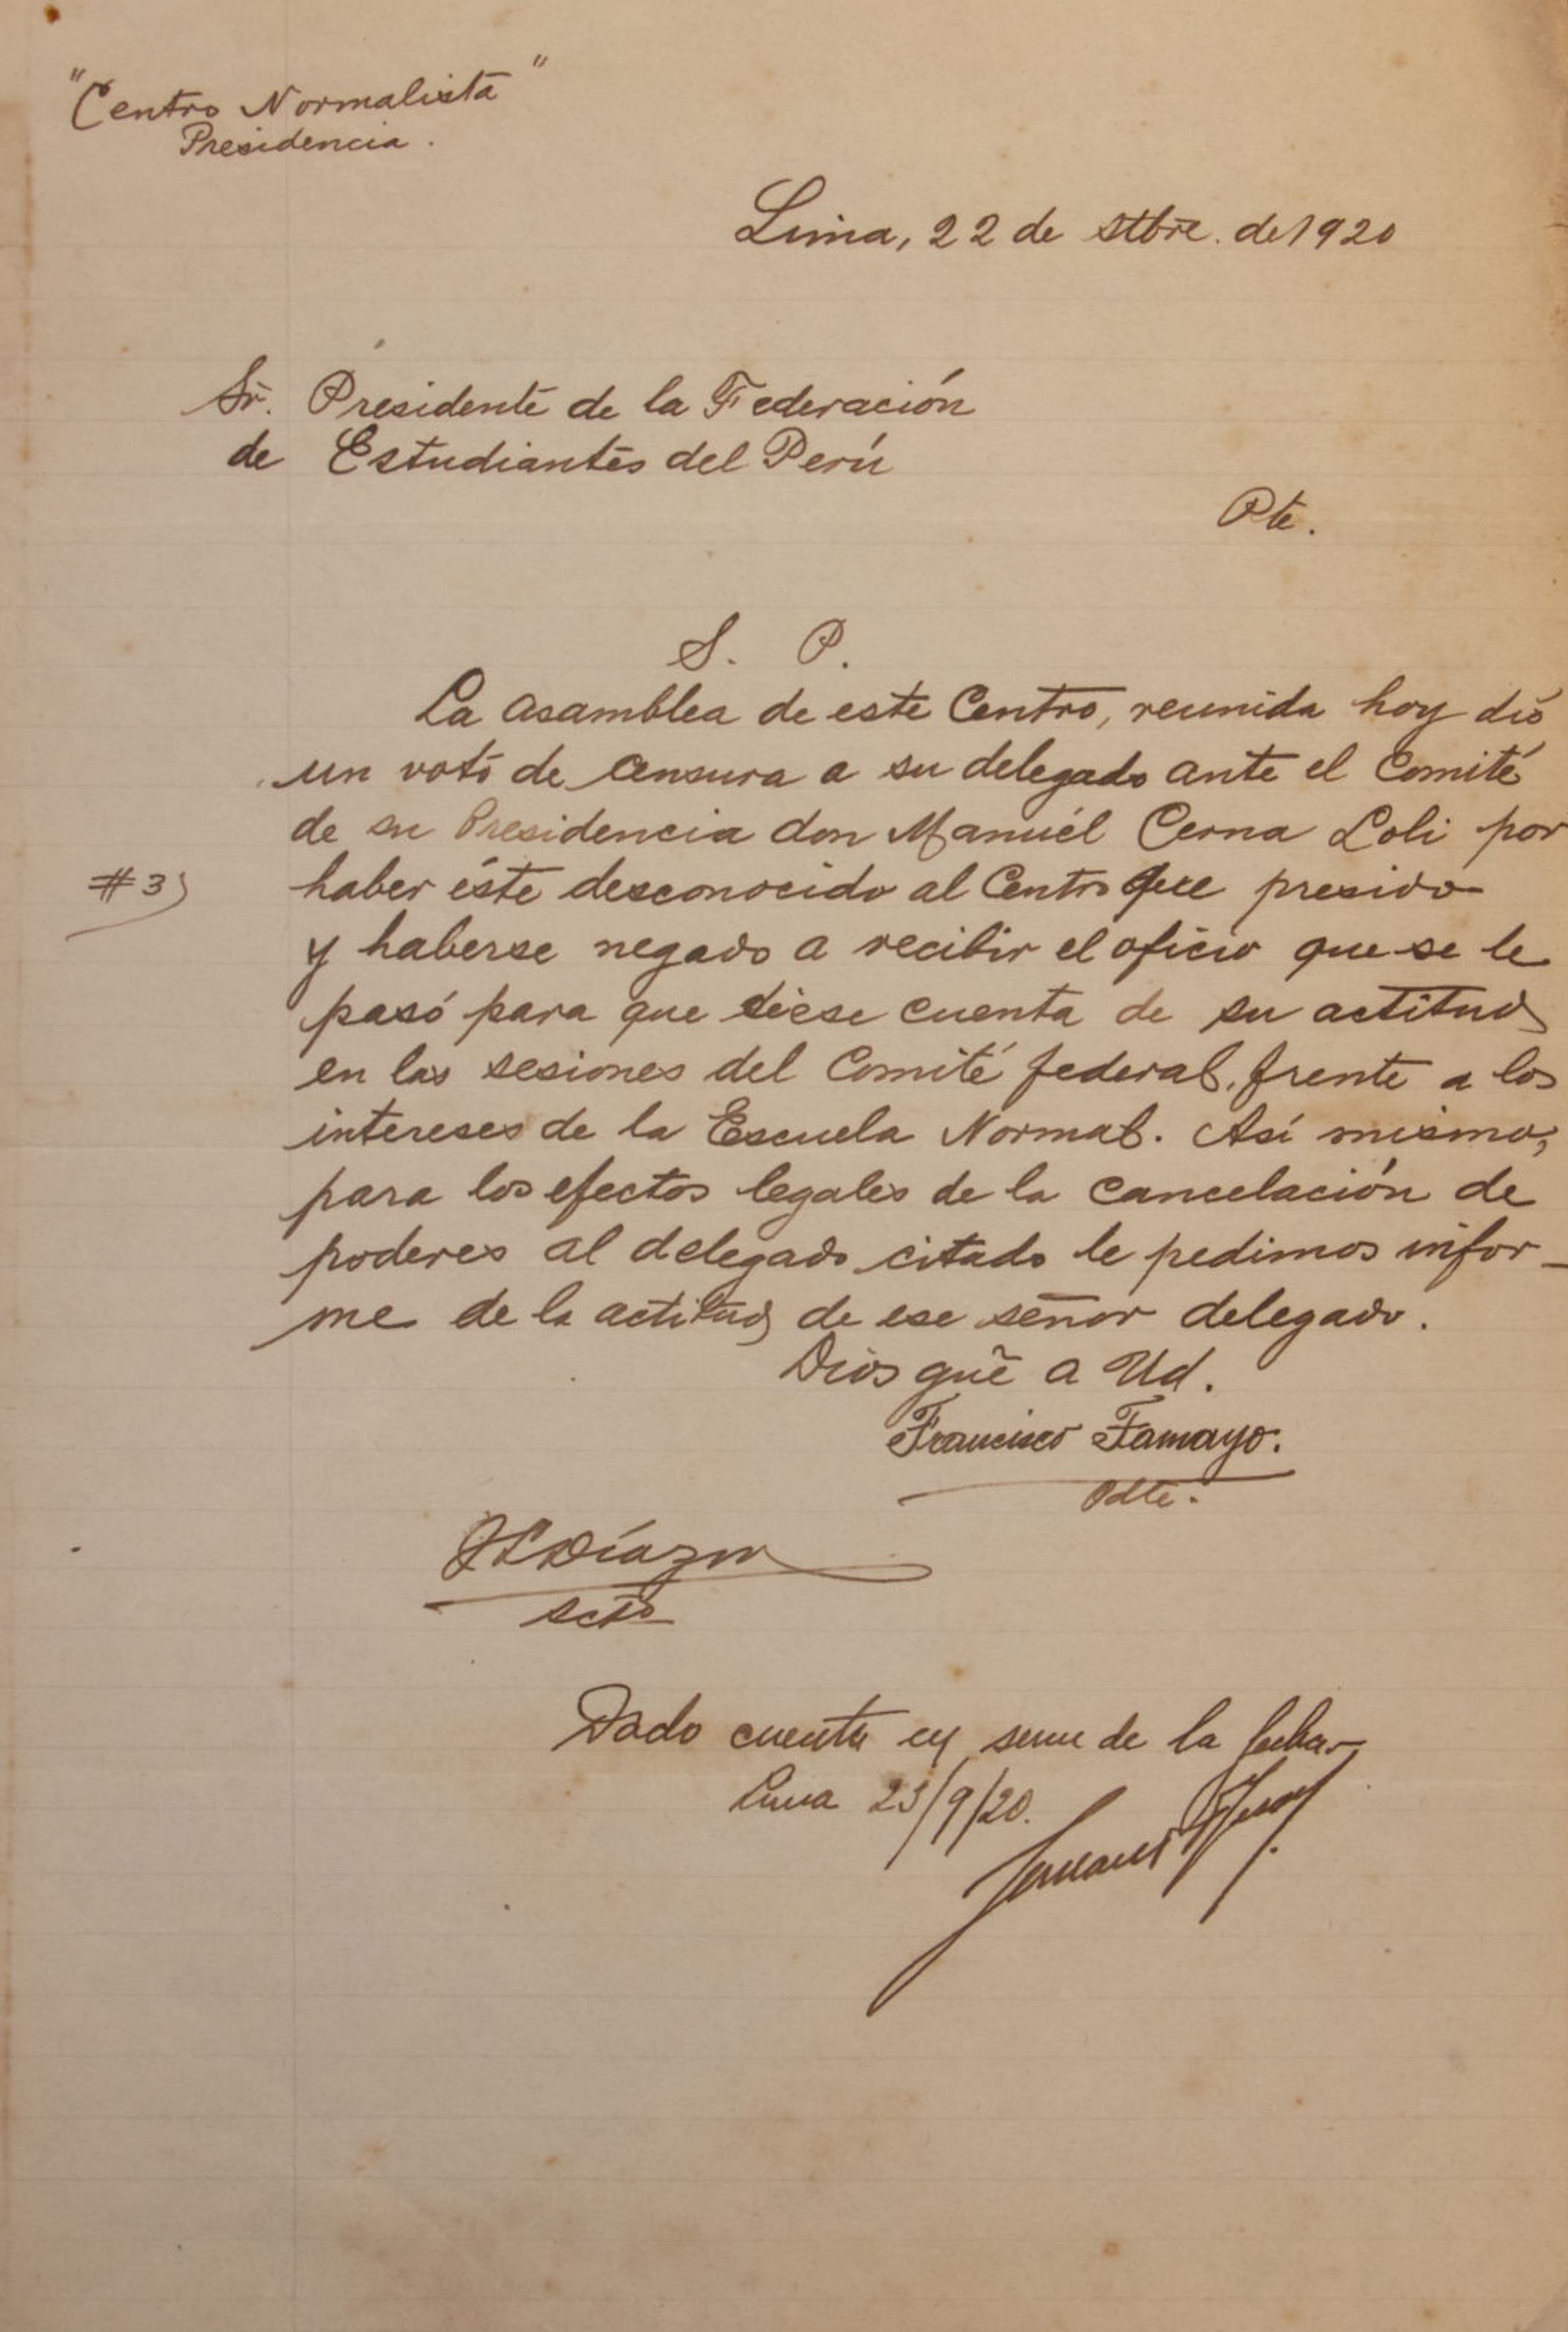 "Centro Normalista"
Presidencia.
Lima, 22 de stbre. de 1920
Sr. Presidente de la Federación
de Estudiantes del Perú
Pte.
S. P.
La asamblea de este Centro, reunida hoy dió
un voto de censura a su delegado ante el Comité
de su Presidencia don Manuél Cerna Loli por
#3) haber éste desconocido al Centro que presido
y haberse negado a recibir el oficio que se le
pasó para que diese cuenta de su actitud
en las sesiones del Comité federal, frente a los
intereses de la Escuela Normal. Así mismo,
para los efectos legales de la cancelación de
poderes al delegado citado le pedimos infor-
me de la actitud de ese señor delegado.
Dios gue a Ud.
Francisco Tamayo.
Pdte.
Díaz
Scto
Dado cuenta en de la fecha
Lima 23/9/20.